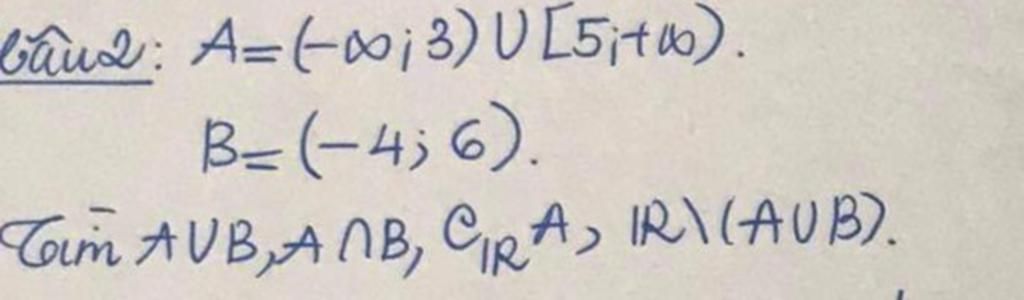 Câu 2: A = (-∞; 3) ∪ [5; +∞).
B = (-4; 6).
Tìm A ∪ B, A ∩ B, C_ℝ A, ℝ \ (A ∪ B).